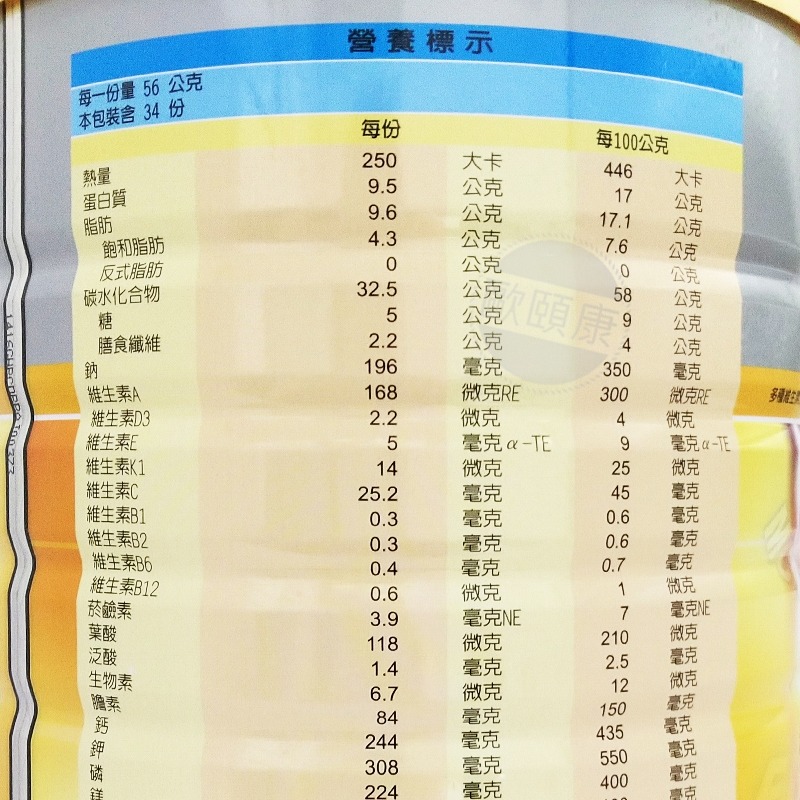 營養標示
每一份量 56 公克
本包裝含 34 份
每份 每100公克
熱量 250 大卡 446 大卡
蛋白質 9.5 公克 17 公克
脂肪 9.6 公克 17.1 公克
飽和脂肪 4.3 公克 7.6 公克
反式脂肪 0 公克 0 公克
碳水化合物 32.5 公克 58 公克
糖 5 公克 9 公克
膳食纖維 2.2 公克 4 公克
鈉 196 毫克 350 毫克
維生素A 168 微克RE 300 微克RE
維生素D3 2.2 微克 4 微克
維生素E 5 毫克α-TE 9 毫克α-TE
維生素K1 14 微克 25 微克
維生素C 25.2 毫克 45 毫克
維生素B1 0.3 毫克 0.6 毫克
維生素B2 0.3 毫克 0.6 毫克
維生素B6 0.4 毫克 0.7 毫克
維生素B12 0.6 微克 1 微克
菸鹼素 3.9 毫克NE 7 毫克NE
葉酸 118 微克 210 微克
泛酸 1.4 毫克 2.5 毫克
生物素 6.7 微克 12 微克
膽素 84 毫克 150 毫克
鈣 244 毫克 435 毫克
鉀 308 毫克 550 毫克
磷 224 毫克 400 毫克
鎂
歐頤康
多種維生素